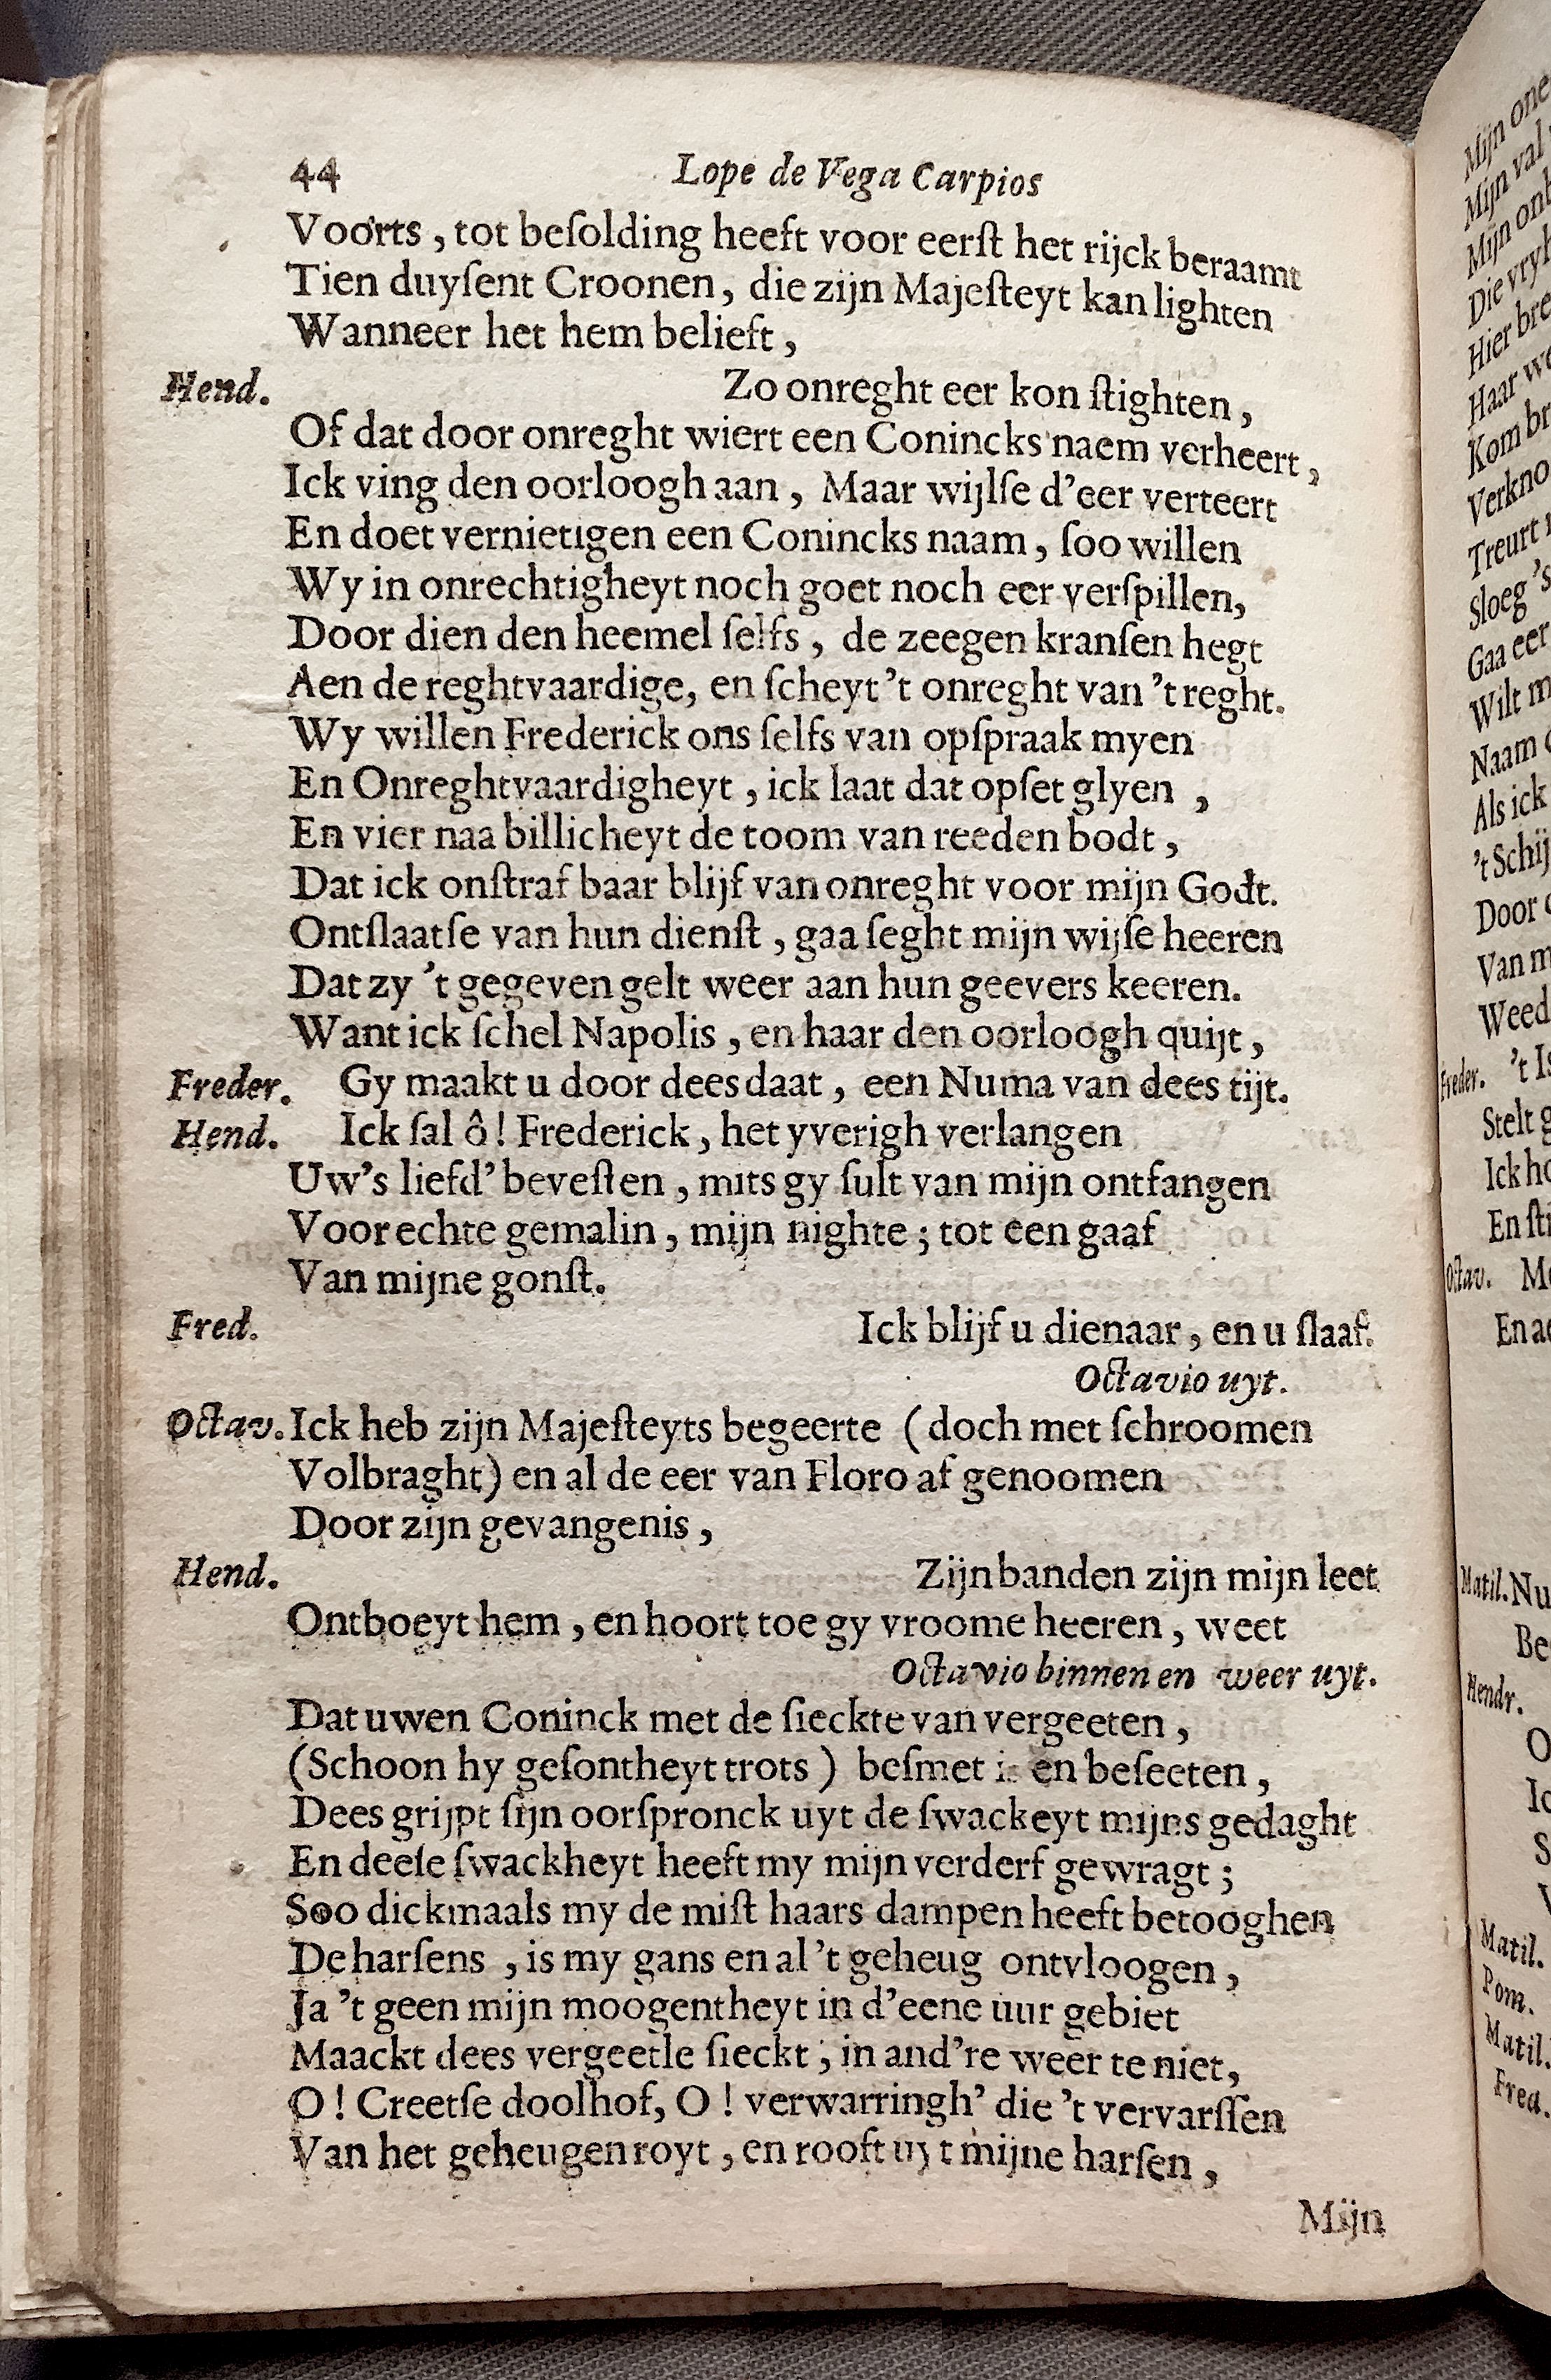 44 Lope de Vega Carpios
Voorts , tot beſolding heeft voor eerſt het rijck beraamt
Tien duyſent Croonen, die zijn Majeſteyt kan lighten
Wanneer het hem belieft ,
Hend. Zo onreght eer kon ſtighten ,
Of dat door onreght wiert een Conincks naem verheert ,
Ick ving den oorloogh aan , Maar wijlſe d'eer verteert
En doet vernietigen een Conincks naam , ſoo willen
Wy in onrechtigheyt noch goet noch eer verſpillen,
Door dien den heemel ſelfs , de zeegen kranſen hegt
Aen de reghtvaardige, en ſcheyt 't onreght van 't reght.
Wy willen Frederick ons ſelfs van opſpraak myen
En Onreghtvaardigheyt , ick laat dat opſet glyen ,
En vier naa billicheyt de toom van reeden bodt ,
Dat ick onſtraf baar blijf van onreght voor mijn Godt.
Ontſlaatſe van hun dienſt , gaa ſeght mijn wijſe heeren
Dat zy 't gegeven gelt weer aan hun geevers keeren.
Want ick ſchel Napolis , en haar den oorloogh quijt ,
Freder. Gy maakt u door dees daat , een Numa van dees tijt.
Hend. Ick ſal ô ! Frederick , het yverigh verlangen
Uw's liefd' beveſten , mits gy ſult van mijn ontfangen
Voor echte gemalin , mijn nighte ; tot een gaaf
Van mijne gonſt.
Fred. Ick blijf u dienaar , en u ſlaaf.
Octavio uyt.
Octav. Ick heb zijn Majeſteyts begeerte ( doch met ſchroomen
Volbraght) en al de eer van Floro af genoomen
Door zijn gevangenis ,
Hend. Zijn banden zijn mijn leet
Ontboeyt hem , en hoort toe gy vroome heeren , weet
Octavio binnen en weer uyt.
Dat uwen Coninck met de ſieckte van vergeeten ,
(Schoon hy geſontheyt trots ) beſmet is en beſeeten ,
Dees grijpt ſijn oorſpronck uyt de ſwackeyt mijns gedaght
En deeſe ſwackheyt heeft my mijn verderf gewragt ;
Soo dickmaals my de miſt haars dampen heeft betooghen
De harſens , is my gans en al 't geheug ontvloogen ,
Ja 't geen mijn moogentheyt in d'eene uur gebiet
Maackt dees vergeetle ſieckt , in and're weer te niet,
O ! Creetſe doolhof, O ! verwarringh' die 't vervarſſen
Van het geheugen royt , en rooft uyt mijne harſen ,
Mijn
Mijn
Mijn val
Mijn
Hier
Haar
Kom
Treurt
Sloeg 's
Gaa eer
Wilt
Naam
Als ick
Door
Van
Freder. 't Is
Stelt
Ick
Octav.
Matil. Nu
Hendr.
Matil.
Pom.
Matil.
Fred.